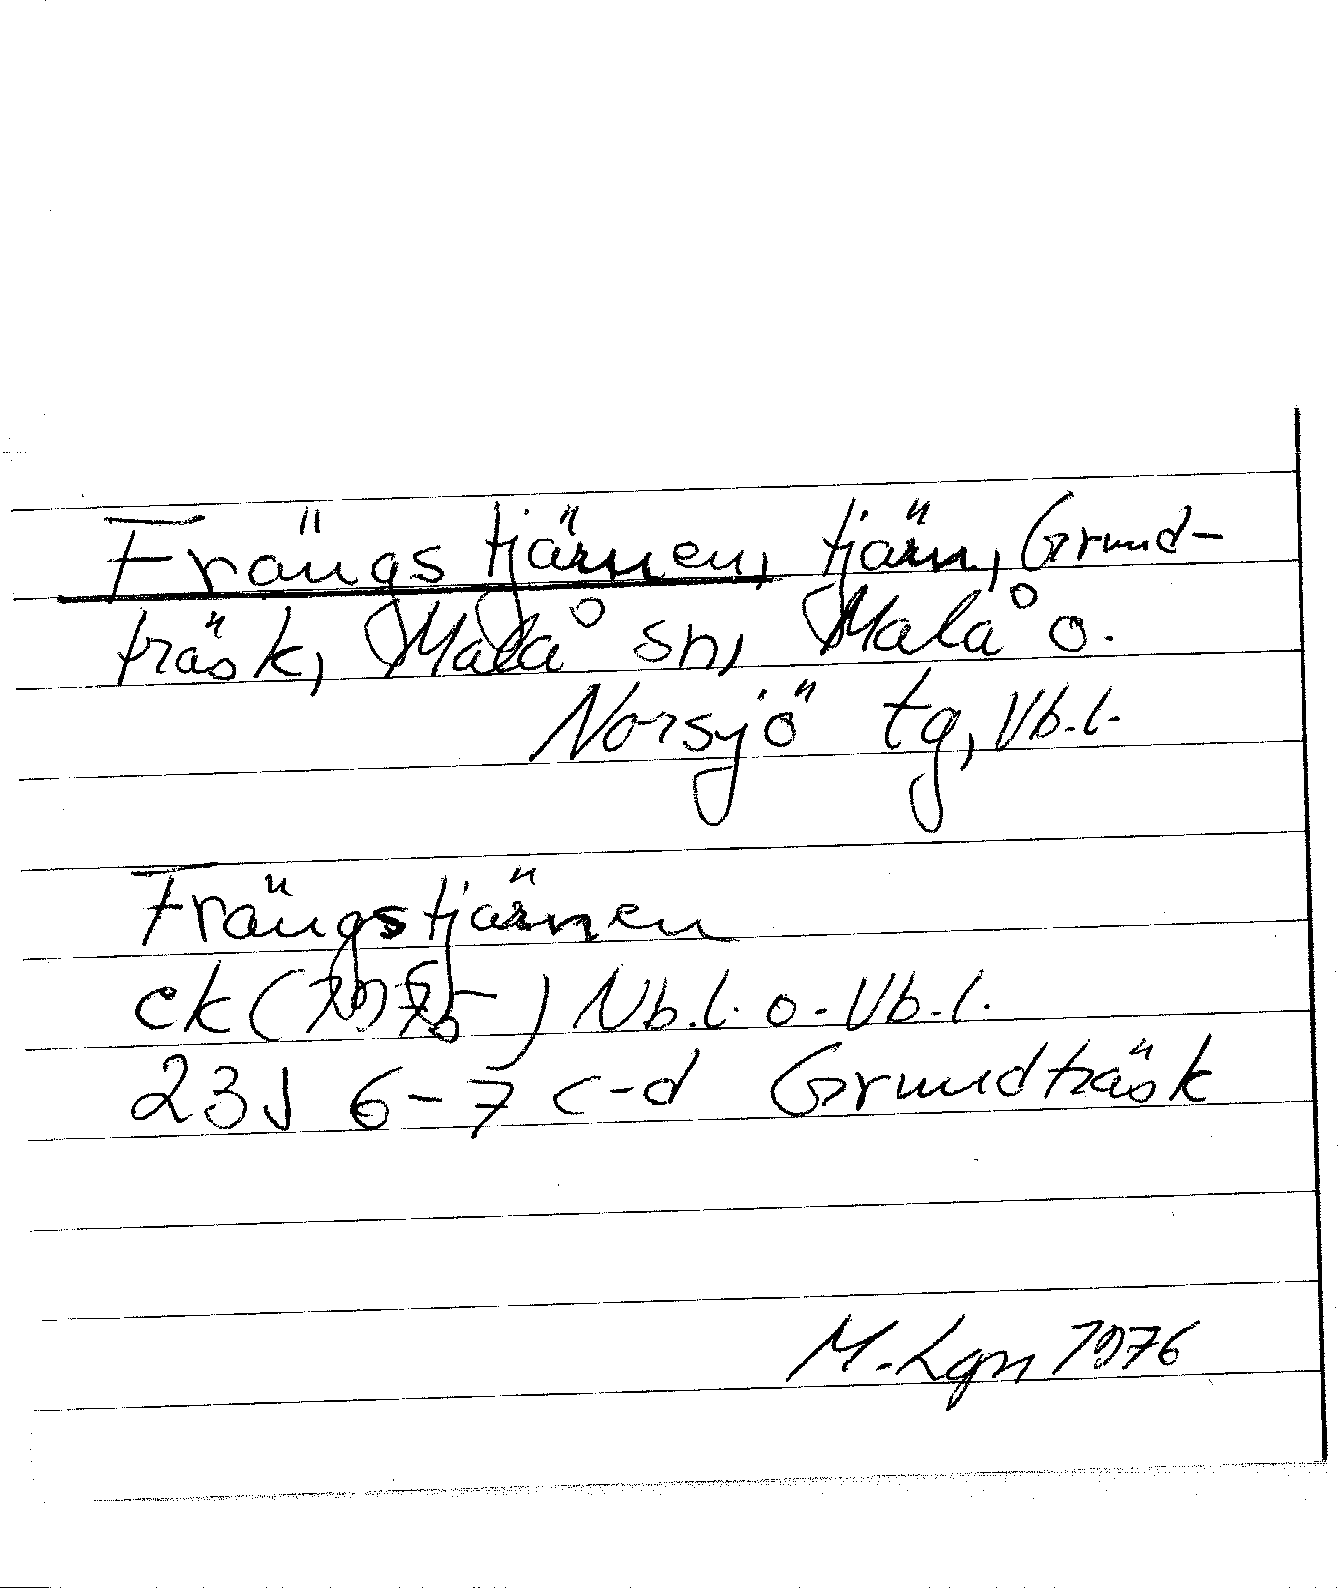 Frängstjärnen, tjärn, Grund-
träsk, Malå sn, Malå o.
Norsjö tg, Vb.l.
Frängstjärnen
ek (1975) Nb.l. o. Vb.l.
23J 6-7 c-d Grundträsk
M. Lgn 1976